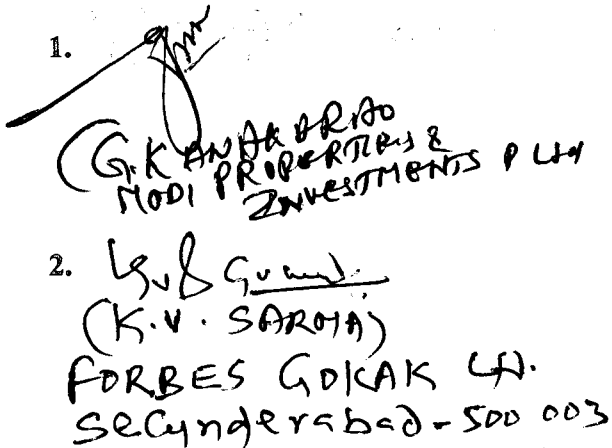 1.
(G. KANAKA RAO
MODI PROPERTIES &
INVESTMENTS P Ltd
2.
(K.V. SARMA)
FORBES GOKAK Ltd.
Secunderabad - 500 003